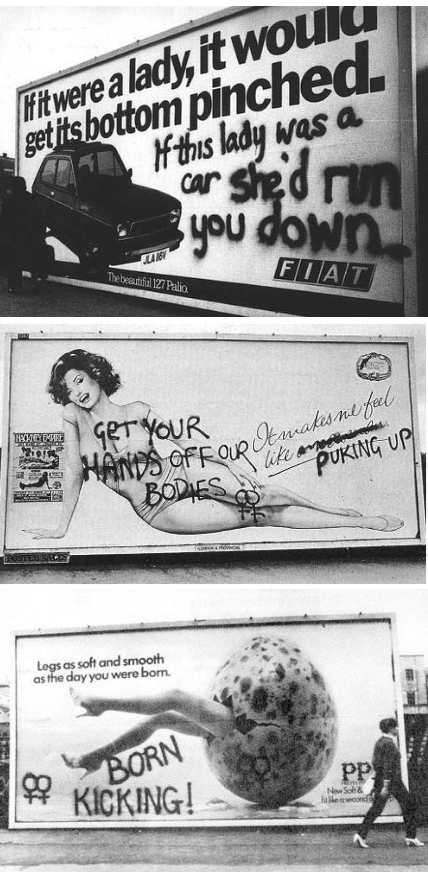 If it were a lady, it would
get its bottom pinched.
If this lady was a
car she'd run
you down
JLA 116V
FIAT
The beautiful 127 Palio.
GET YOUR
HANDS OFF OUR
BODIES
It makes me feel
like
PUKING UP
HACKNEY EMPIRE
LONDON & PROVINCIAL
Legs as soft and smooth
as the day you were born.
BORN
KICKING!
PP
New Soft &
like a second